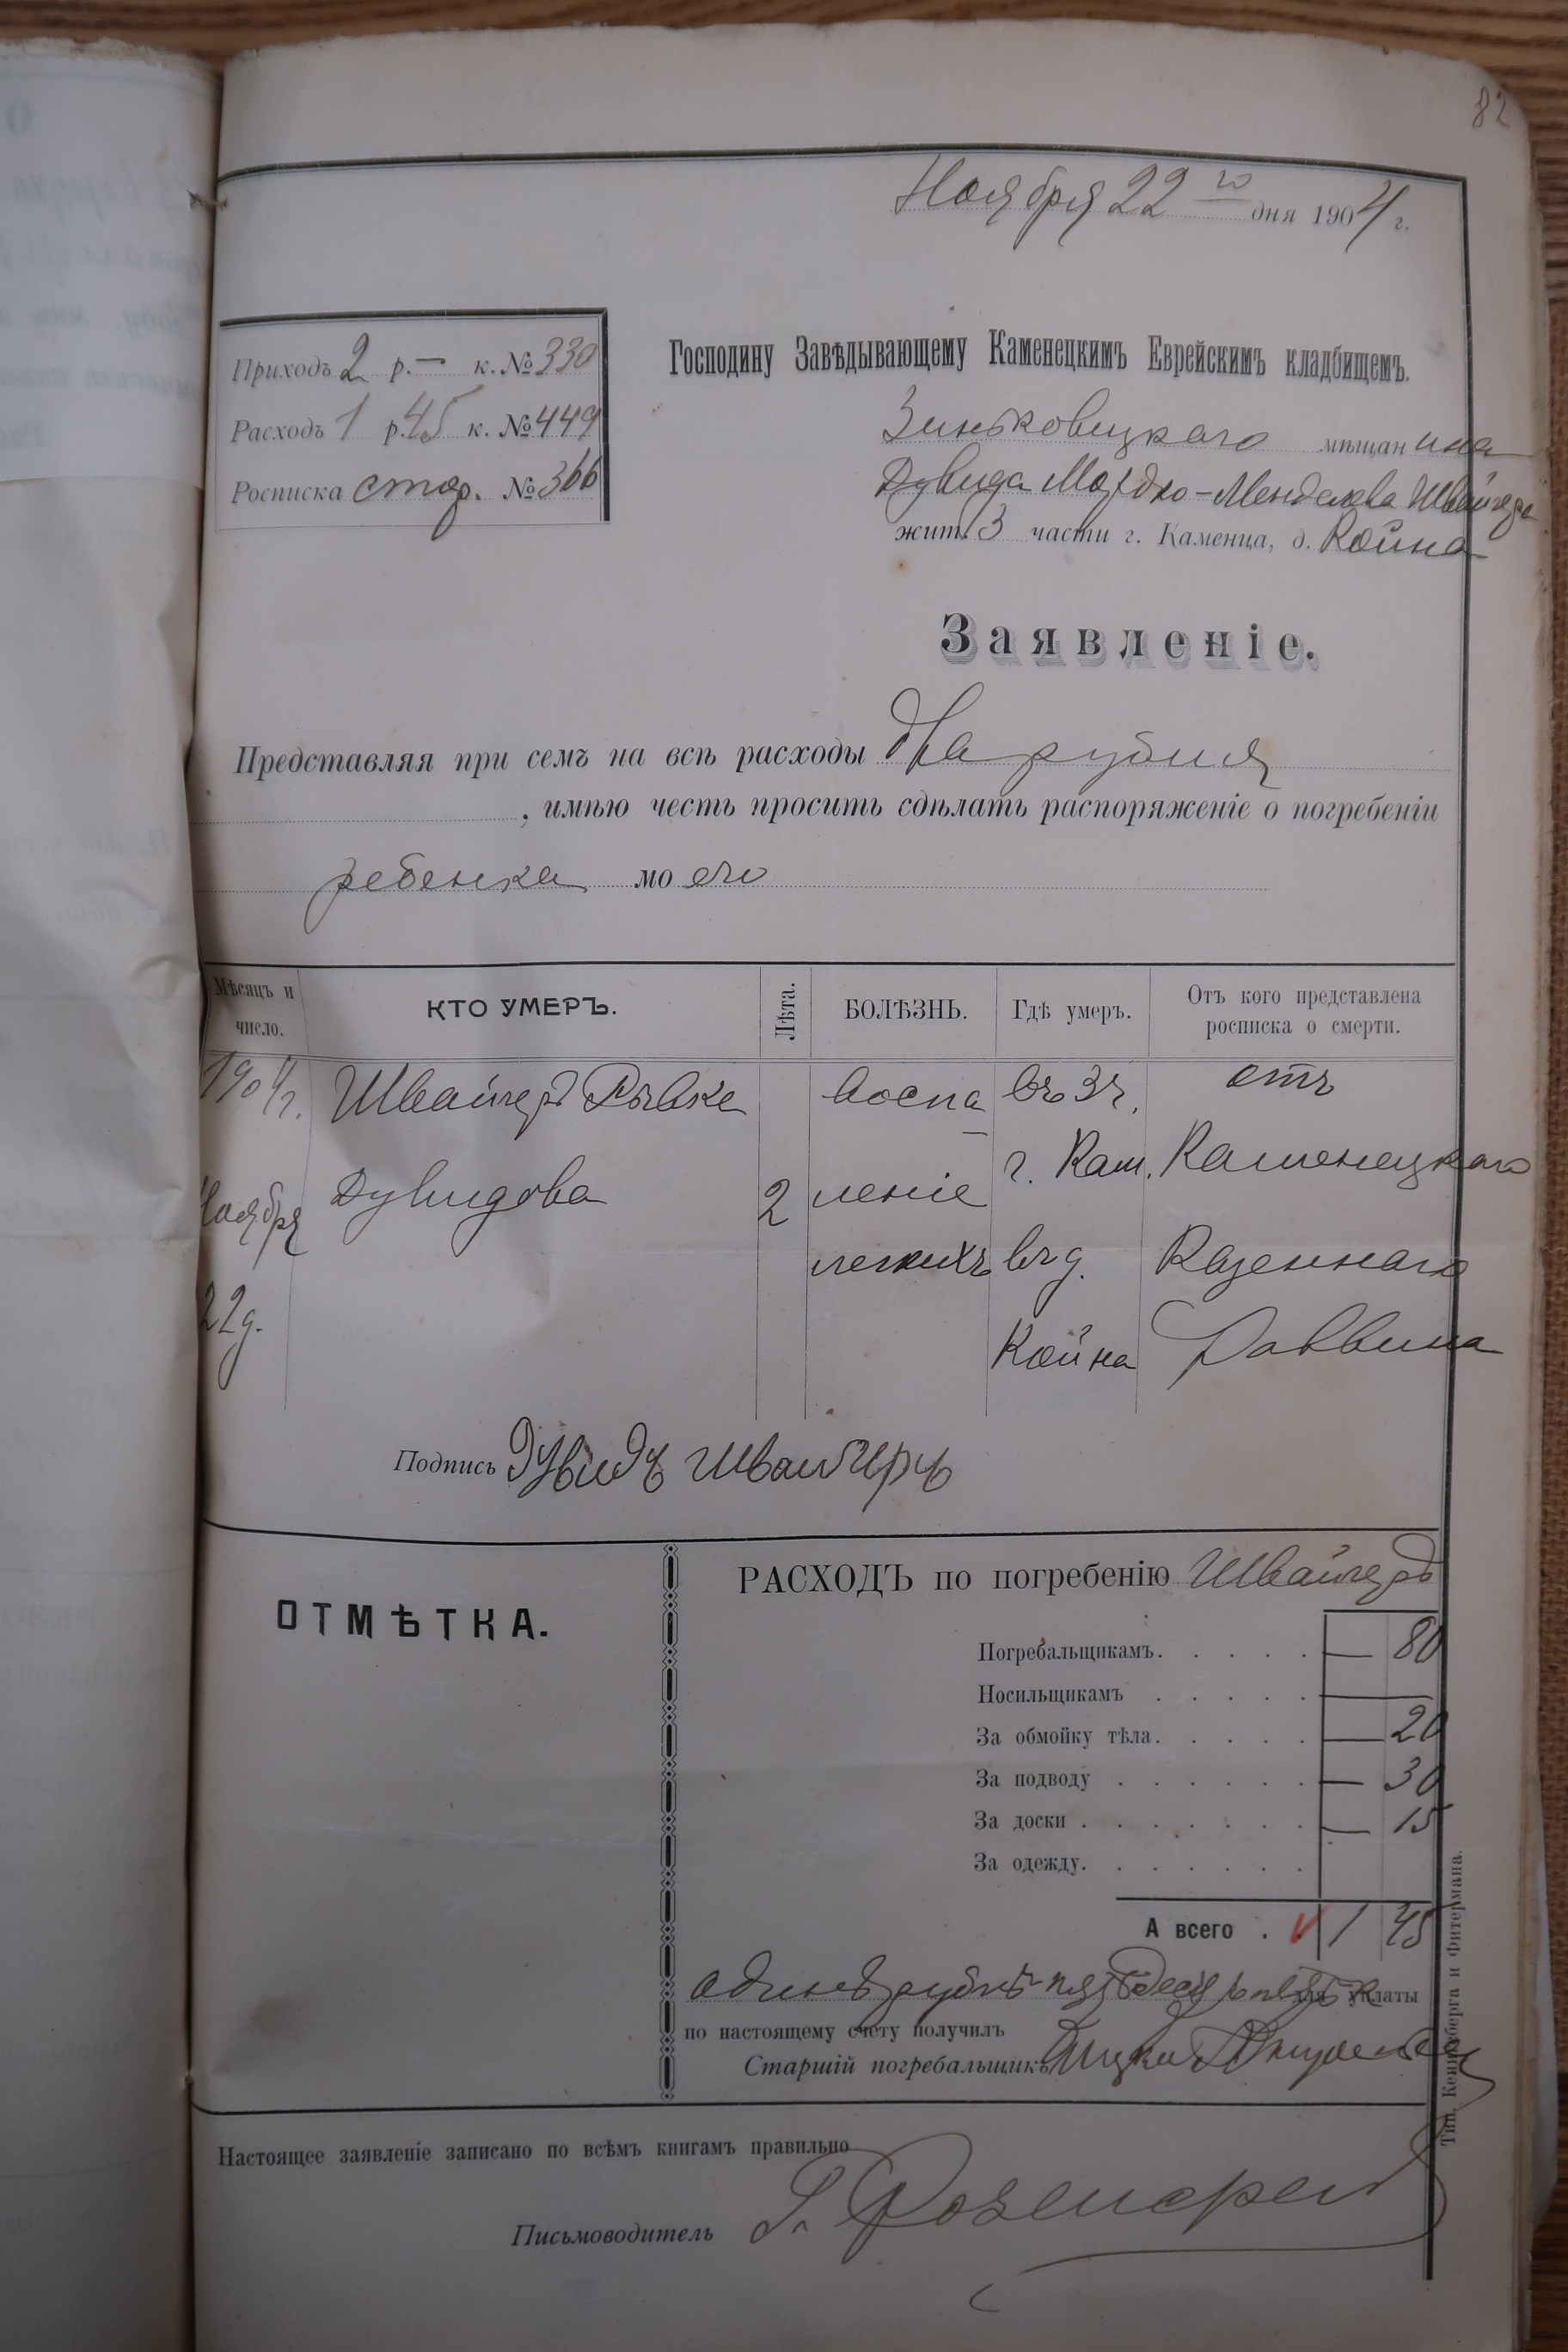 82
Ноября 22 го дня 1904 г.
Приходъ 2 р. — к. № 330
Расходъ 1 р. 45 к. № 449
Росписка стор. № 366
Господину Завѣдывающему Каменецкимъ Еврейскимъ кладбищемъ.
Зиньковецкаго мѣщанина
Дувида Мордко-Менделева Швайгера
жит. 3 части г. Каменца, д. Койна
Заявленіе.
Представляя при семъ на всѣ расходы два рубля
, имѣю честь просить сдѣлать распоряженіе о погребеніи
ребенка моего
Мѣсяцъ и число. КТО УМЕРЪ. Лѣта. БОЛѢЗНЬ. Гдѣ умеръ. Отъ кого представлена росписка о смерти.
1904 г. Швайгеръ Рывке воспа въ 3 ч. отъ
Ноября Дувидова 2 леніе г. Кам. Каменецкаго
22 д. легкихъ въ д. Казеннаго
Койна Раввина
Подпись Дувидъ Швайгеръ
ОТМѢТКА.
РАСХОДЪ по погребенію Швайгеръ
Погребальщикамъ. — 80
Носильщикамъ —
За обмойку тѣла. — 20
За подводу — 30
За доски — 15
За одежду.
А всего 1 45
для уплаты
по настоящему счету получилъ
Старшій погребальщикъ
Настоящее заявленіе записано по всѣмъ книгамъ правильно
Письмоводитель
Тип. Кенигсберга и Фитермана.